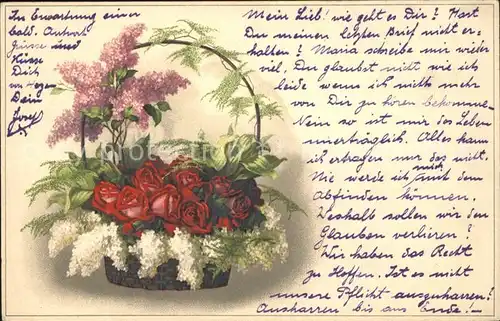 Mein Lieb! wie geht es Dir? Hast
Du meinen letzten Brief nicht er,
halten? Maria schreibe mir wieder
viel. Du glaubst nicht wie ich
leide wenn ich nichts mehr
von Dir zu hören bekomme.
Nein so ist mir das Leben
unerträglich. Alles kann
ich ertragen nur das nicht.
Nie werde ich mich damit
abfinden können.
Weshalb sollen wir den
Glauben verlieren?
Wir haben das Recht
zu Hoffen. Ist es nicht
unsere Pflicht auszuharren?
Ausharren bis ans Ende! –
In Erwartung einer
bald. Antwort
Grüsse und
Küsse
Dich
Dein
Josef